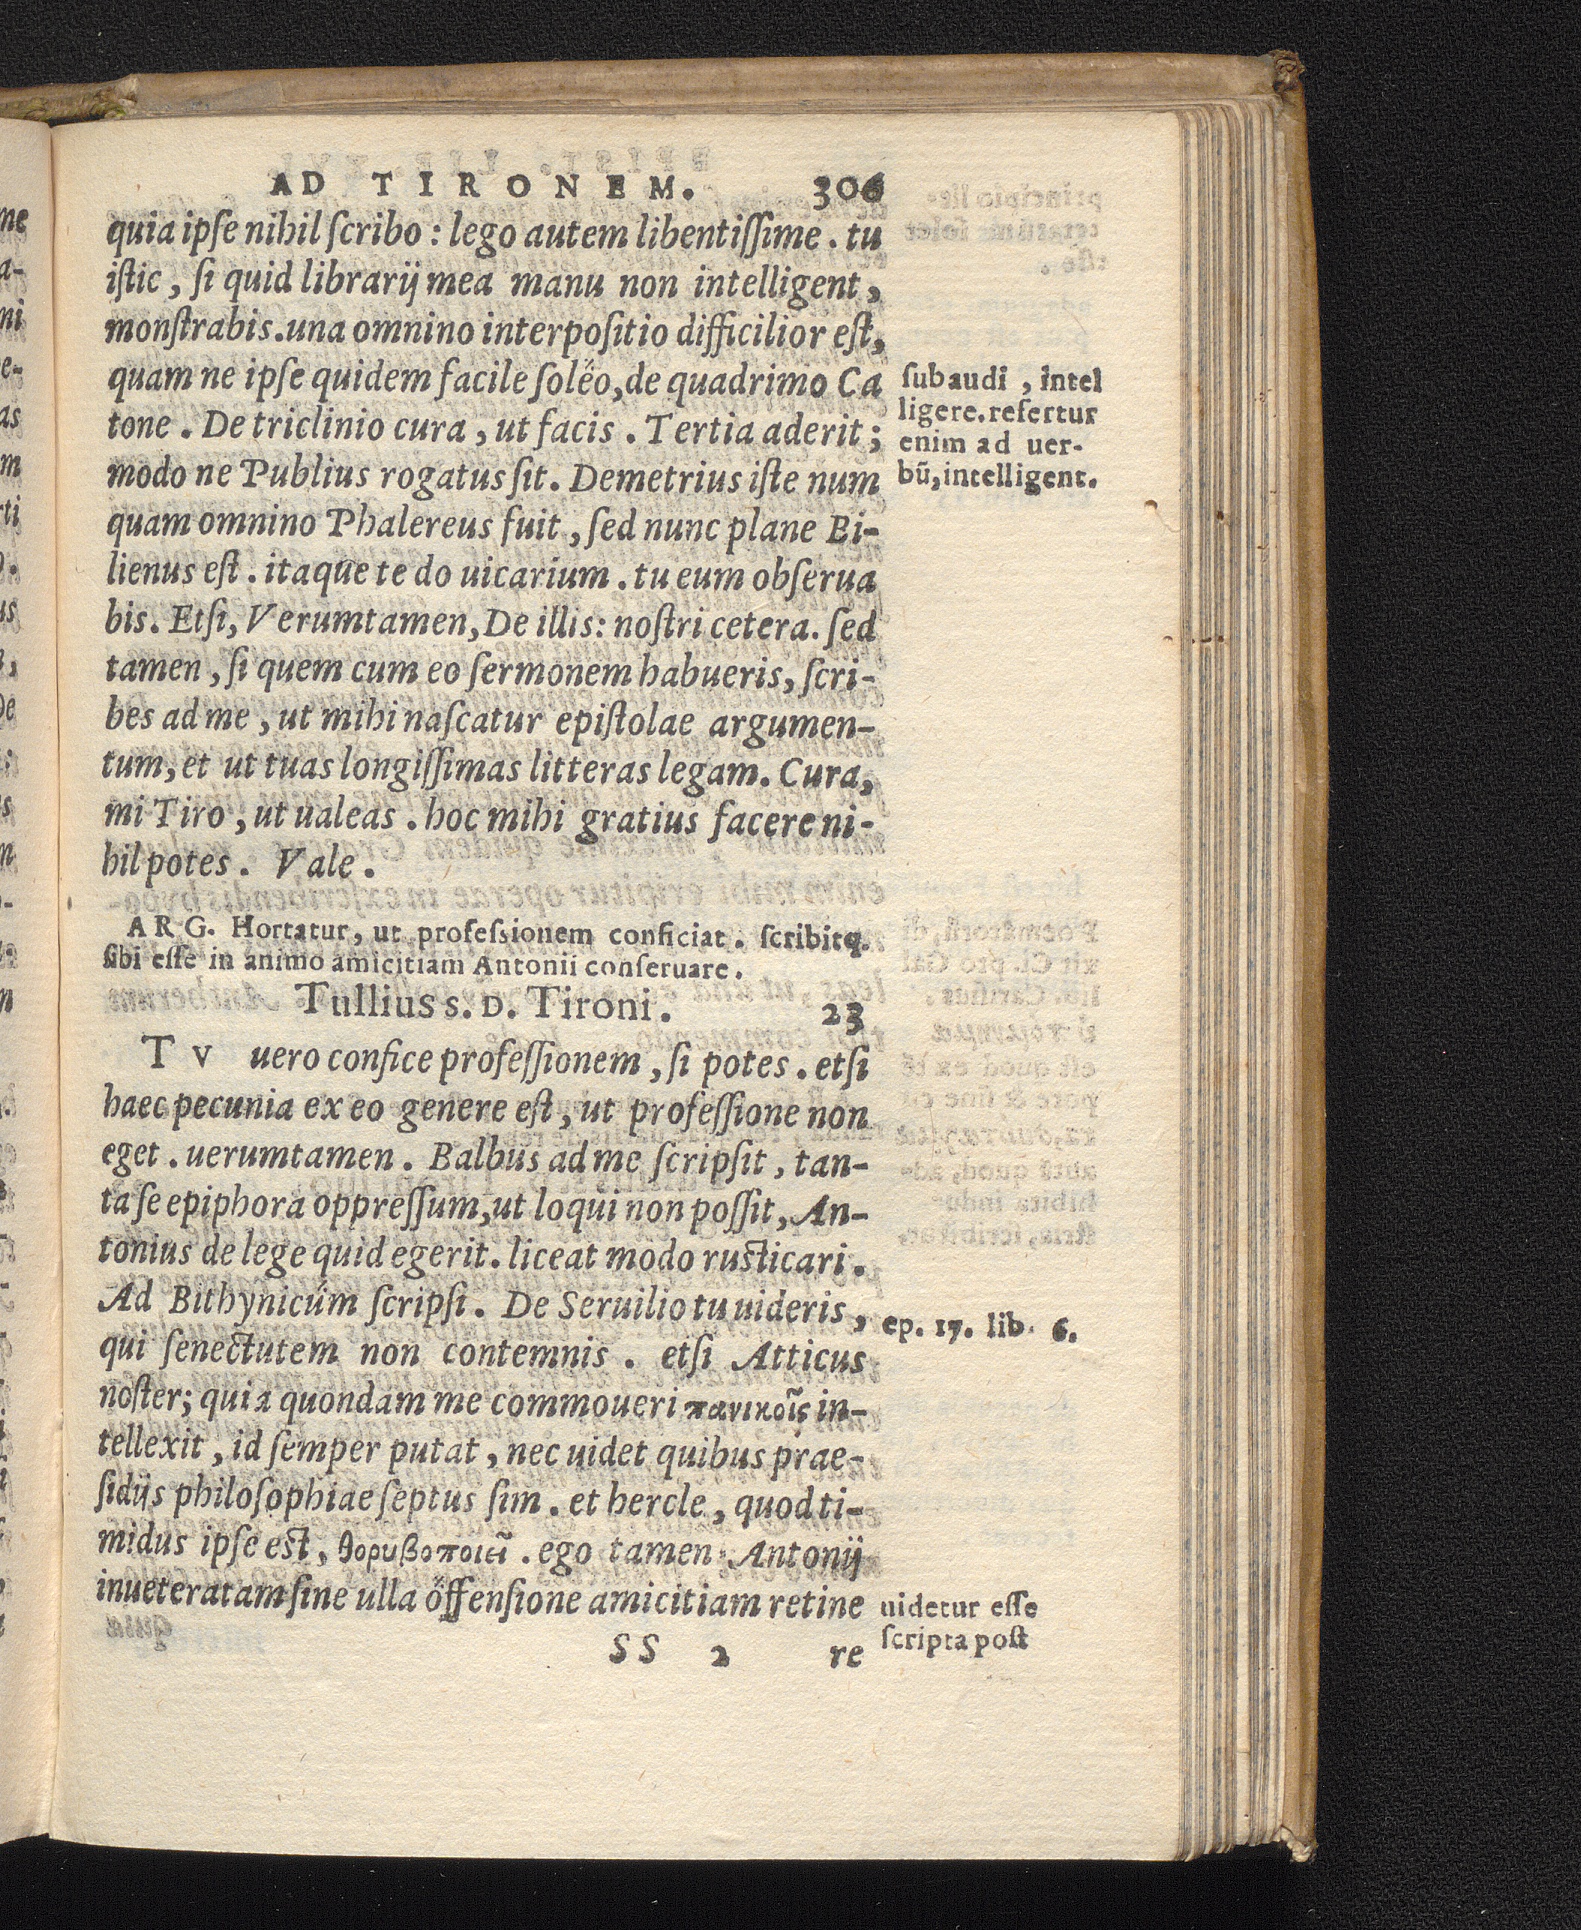 AD TIRONEM. 306
quia ipſe nihil ſcribo: lego autem libentiſſime. tu
iſtic, ſi quid librarij mea manu non intelligent,
monſtrabis. una omnino interpoſitio difficilior eſt,
quam ne ipſe quidem facile ſoleo, de quadrimo Ca
tone. De triclinio cura, ut facis. Tertia aderit;
modo ne Publius rogatus ſit. Demetrius iſte num
quam omnino Phalereus fuit, ſed nunc plane Bi-
lienus eſt. itaque te do uicarium. tu eum obſerua
bis. Etſi, Verumtamen, De illis: noſtri cetera. ſed
tamen, ſi quem cum eo ſermonem habueris, ſcri-
bes ad me, ut mihi naſcatur epiſtolae argumen-
tum, et ut tuas longiſſimas litteras legam. Cura,
mi Tiro, ut ualeas. hoc mihi gratius facere ni-
hil potes. Vale.
ſubaudi, intel
ligere. refertur
enim ad uer-
bũ, intelligent.
ARG. Hortatur, ut profeſsionem conficiat. ſcribitq.
ſibi eſſe in animo amicitiam Antonii conſeruare.
Tullius s. D. Tironi. 23
TV uero confice profeſſionem, ſi potes. etſi
haec pecunia ex eo genere eſt, ut profeſſione non
eget. uerumtamen. Balbus ad me ſcripſit, tan-
ta ſe epiphora oppreſſum, ut loqui non poſſit, An-
tonius de lege quid egerit. liceat modo ruſticari.
Ad Bithynicum ſcripſi. De Seruilio tu uideris,
qui ſenectutem non contemnis. etſi Atticus
noſter; quia quondam me commoueri πανικοῖς in-
tellexit, id ſemper putat, nec uidet quibus prae-
ſidijs philoſophiae ſeptus ſim. et hercle, quod ti-
midus ipſe eſt, θορυβοποιεῖ. ego tamen Antonij
inueteratam ſine ulla offenſione amicitiam retine
ep. 17. lib. 6.
uidetur eſſe
ſcripta poſt
SS 2 re